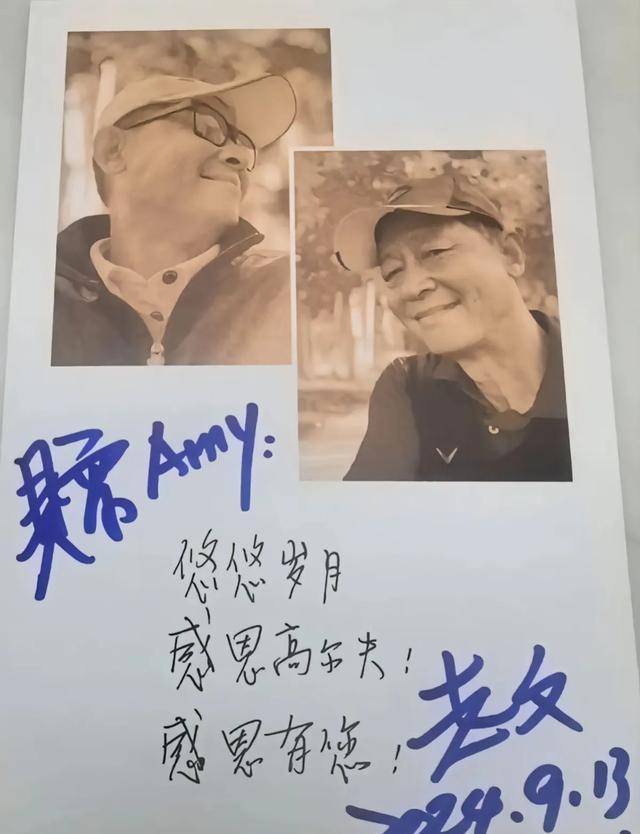 赠 Amy:
悠悠岁月
感恩高尔夫!
感恩有您!
老文
2024.9.13